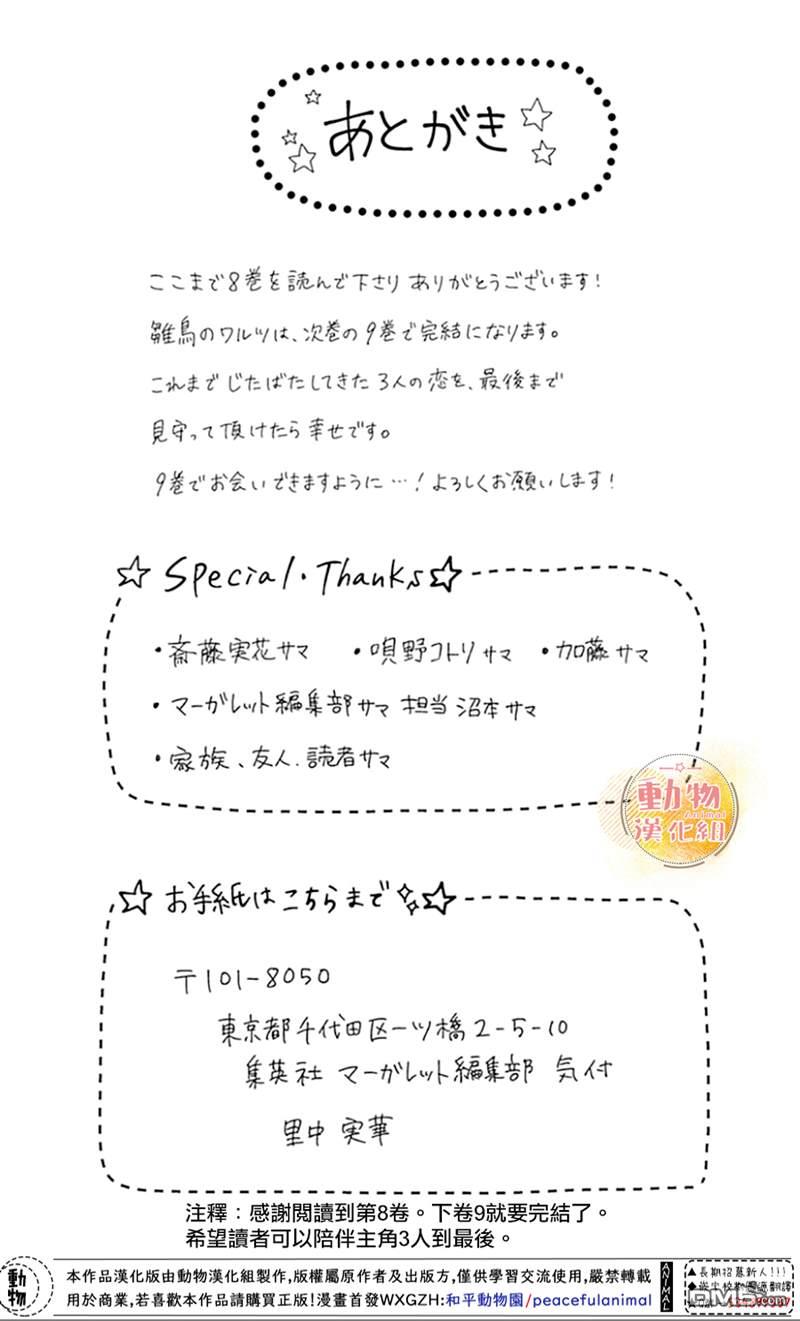 あとがき
ここまで8巻を読んで下さり ありがとうございます!
雛鳥のワルツは、次巻の9巻で完結になります。
これまで じたばたしてきた 3人の恋を、最後まで
見守って頂けたら幸せです。
9巻でお会いできますように…! よろしくお願いします!
☆ Special・Thanks ☆
・斎藤実花サマ ・唄野コトリサマ ・加藤サマ
・マーガレット編集部サマ 担当 沼本サマ
・家族、友人、読者サマ
動物
Animal
漢化組
☆ お手紙はこちらまで ☆
〒101-8050
東京都千代田区一ツ橋2-5-10
集英社 マーガレット編集部 気付
里中 実華
注釋：感謝閲讀到第8卷。下卷9就要完結了。
希望讀者可以陪伴主角3人到最後。
動物
本作品漢化版由動物漢化組製作,版權屬原作者及出版方,僅供學習交流使用,嚴禁轉載
用於商業,若喜歡本作品請購買正版!漫畫首發WXGZH:和平動物園/peacefulanimal
ANIMAL
▲長期招募新人!!!